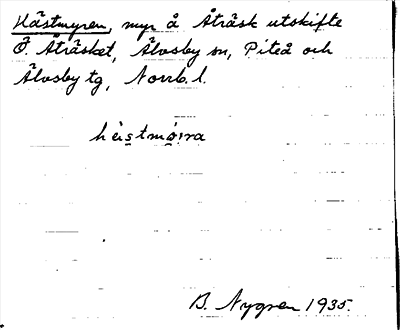 Hästmyren, myr å Åträsk utskifte
Ö. Åträsket, Älvsby sn, Piteå och
Älvsby tg, Norrb. l.
B. Nygren 1935.